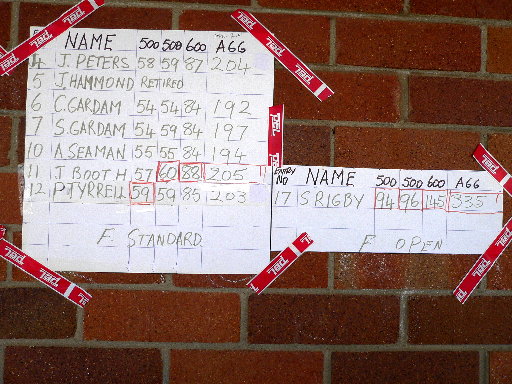 NAME 500 500 600 AGG
4 J. PETERS 58 59 87 204
5 J. HAMMOND RETIRED
6 C. GARDAM 54 54 84 192
7 S. GARDAM 54 59 84 197
10 A. SEAMAN 55 55 84 194
11 J BOOTH 57 60 88 205
12 P. TYRRELL 59 59 85 203
F STANDARD
ENTRY NO NAME 500 500 600 AGG
17 S RIGBY 94 96 145 335
F OPEN